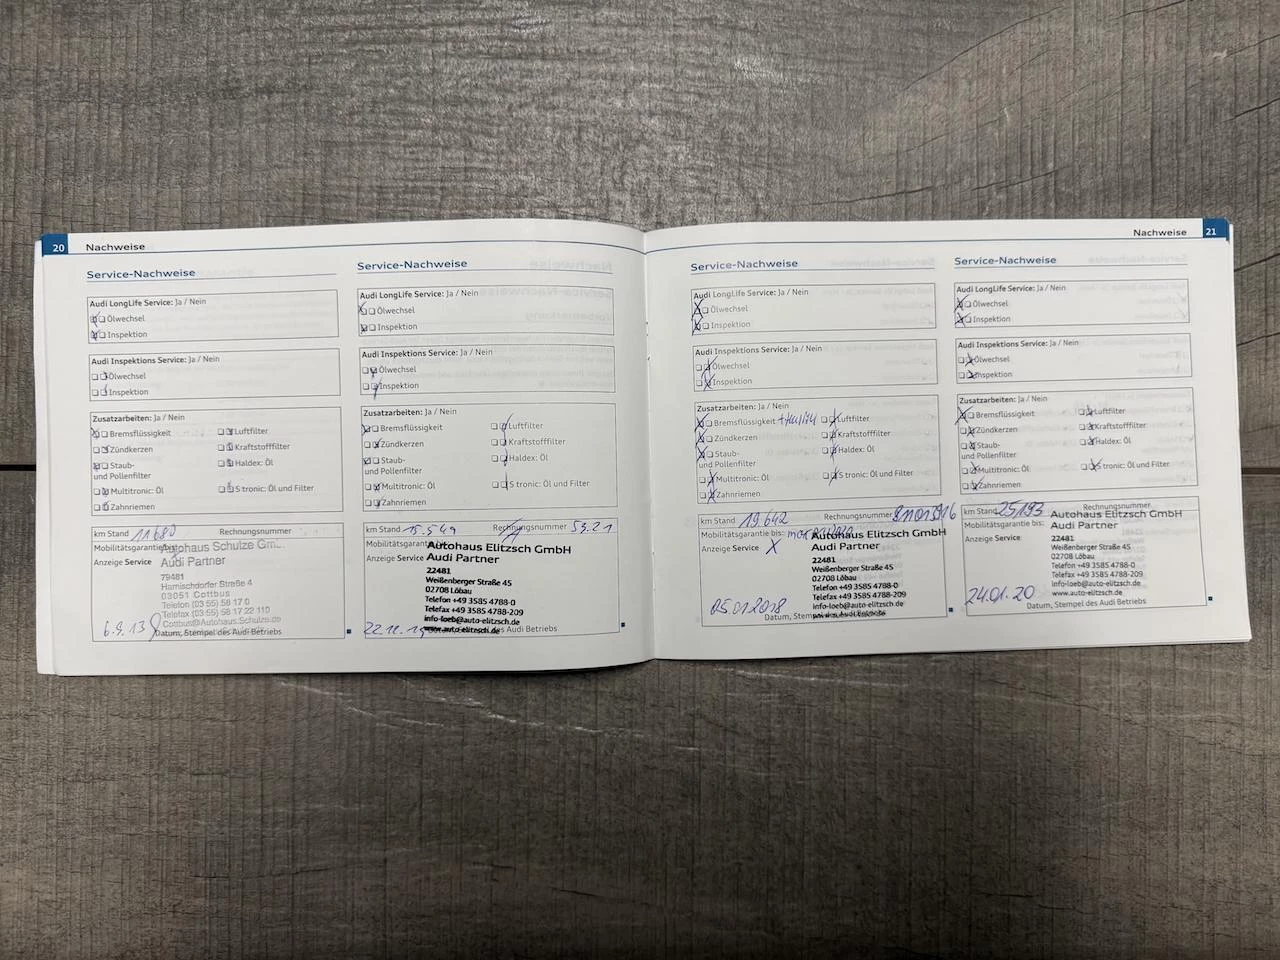 20 Nachweise
Service-Nachweise
Audi LongLife Service: Ja / Nein
Ölwechsel
Inspektion
Audi Inspektions Service: Ja / Nein
Ölwechsel
Inspektion
Zusatzarbeiten: Ja / Nein
Bremsflüssigkeit
Luftfilter
Zündkerzen
Kraftstofffilter
Staub-
und Pollenfilter
Haldex: Öl
Multitronic: Öl
S tronic: Öl und Filter
Zahnriemen
km Stand 11680 Rechnungsnummer
Mobilitätsgarantie
Autohaus Schulze
Anzeige Service Audi Partner
79481
Harnischdorfer Straße 4
03051 Cottbus
Telefon (03 55) 58 17 0
Telefax (03 55) 58 17 22 110
Cottbus@Autohaus.Schulze.de
6.9.13
Datum, Stempel des Audi Betriebs
Service-Nachweise
Audi LongLife Service: Ja / Nein
Ölwechsel
Inspektion
Audi Inspektions Service: Ja / Nein
Ölwechsel
Inspektion
Zusatzarbeiten: Ja / Nein
Bremsflüssigkeit
Luftfilter
Zündkerzen
Kraftstofffilter
Staub-
und Pollenfilter
Haldex: Öl
Multitronic: Öl
S tronic: Öl und Filter
Zahnriemen
km Stand 15.549 Rechnungsnummer 5321
Mobilitätsgarantie
Autohaus Elitzsch GmbH
Anzeige Service Audi Partner
22481
Weißenberger Straße 45
02708 Löbau
Telefon +49 3585 4788-0
Telefax +49 3585 4788-209
info-loeb@auto-elitzsch.de
www.auto-elitzsch.de
22.12.
des Audi Betriebs
Nachweise 21
Service-Nachweise
Audi LongLife Service: Ja / Nein
Ölwechsel
Inspektion
Audi Inspektions Service: Ja / Nein
Ölwechsel
Inspektion
Zusatzarbeiten: Ja / Nein
Bremsflüssigkeit
Luftfilter
Zündkerzen
Kraftstofffilter
Staub-
und Pollenfilter
Haldex: Öl
Multitronic: Öl
S tronic: Öl und Filter
Zahnriemen
km Stand 19.642 Rechnungsnummer
Mobilitätsgarantie bis:
Autohaus Elitzsch GmbH
Anzeige Service X Audi Partner
22481
Weißenberger Straße 45
02708 Löbau
Telefon +49 3585 4788-0
Telefax +49 3585 4788-209
info-loeb@auto-elitzsch.de
www.auto-elitzsch.de
05.01.2018
Datum, Stempel des Audi Betriebs
Service-Nachweise
Audi LongLife Service: Ja / Nein
Ölwechsel
Inspektion
Audi Inspektions Service: Ja / Nein
Ölwechsel
Inspektion
Zusatzarbeiten: Ja / Nein
Bremsflüssigkeit
Luftfilter
Zündkerzen
Kraftstofffilter
Staub-
und Pollenfilter
Haldex: Öl
Multitronic: Öl
S tronic: Öl und Filter
Zahnriemen
km Stand 25193 Rechnungsnummer
Mobilitätsgarantie bis:
Autohaus Elitzsch GmbH
Audi Partner
Anzeige Service 22481
Weißenberger Straße 45
02708 Löbau
Telefon +49 3585 4788-0
Telefax +49 3585 4788-209
info-loeb@auto-elitzsch.de
www.auto-elitzsch.de
24.01.20
Datum, Stempel des Audi Betriebs